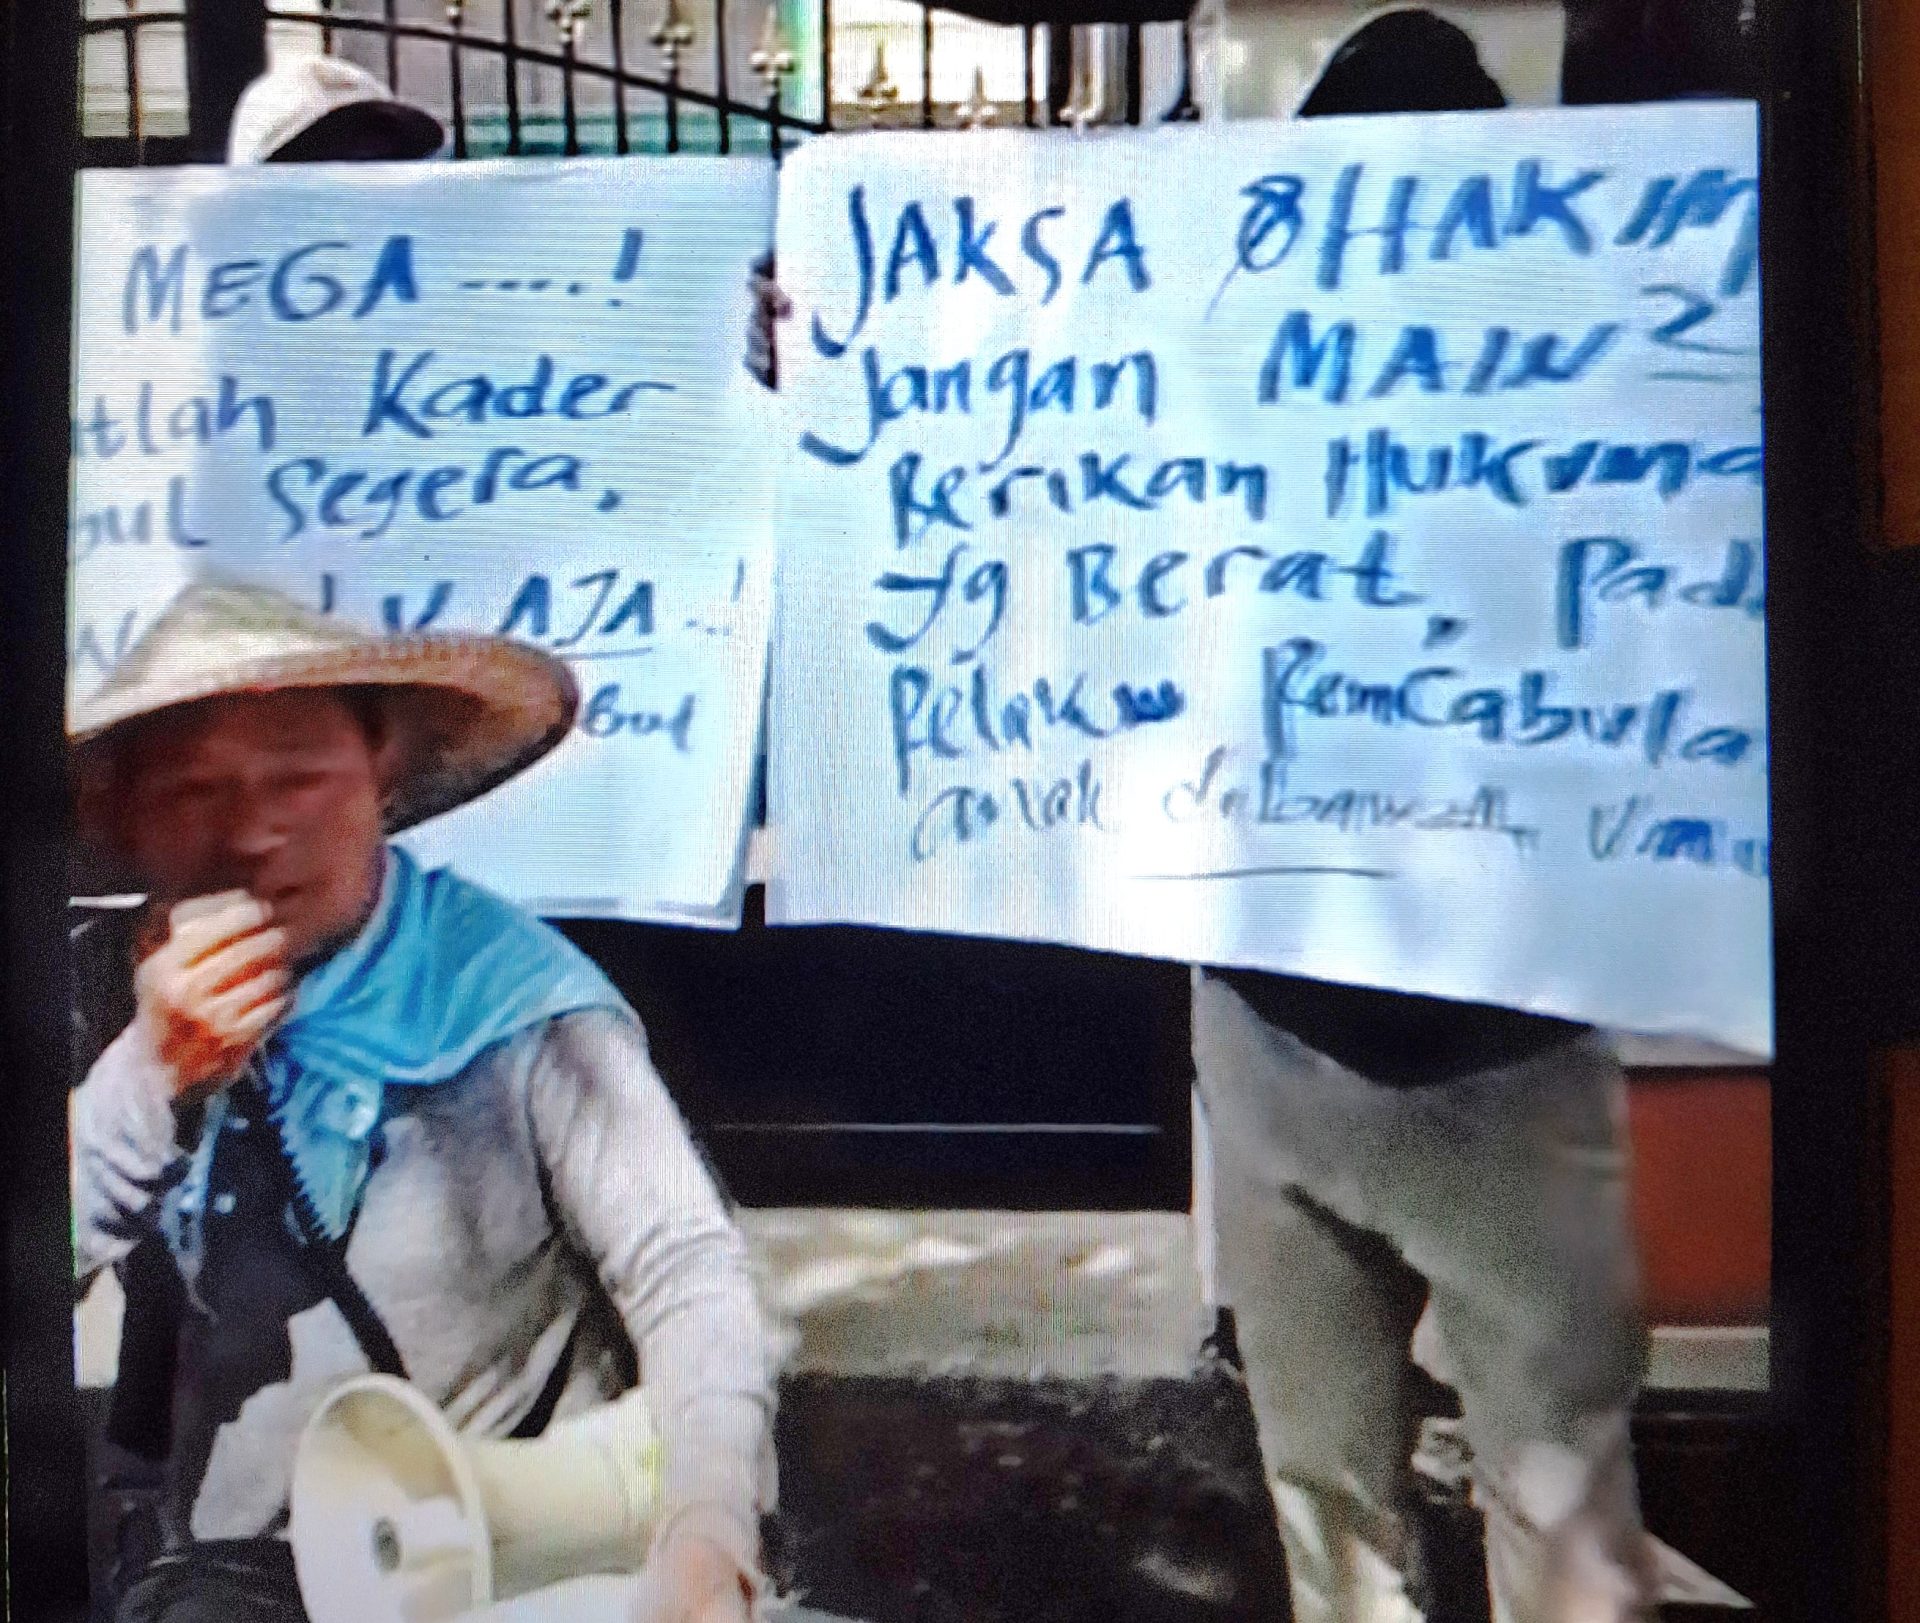 MEGA ....!
tlah Kader
bul Segera,
AJA ...!
JAKSA & HAKIM
Jangan MAIN2
Berikan Hukuma
Yg Berat, Pada
Pelaku Pencabula
anak dibawah Umu